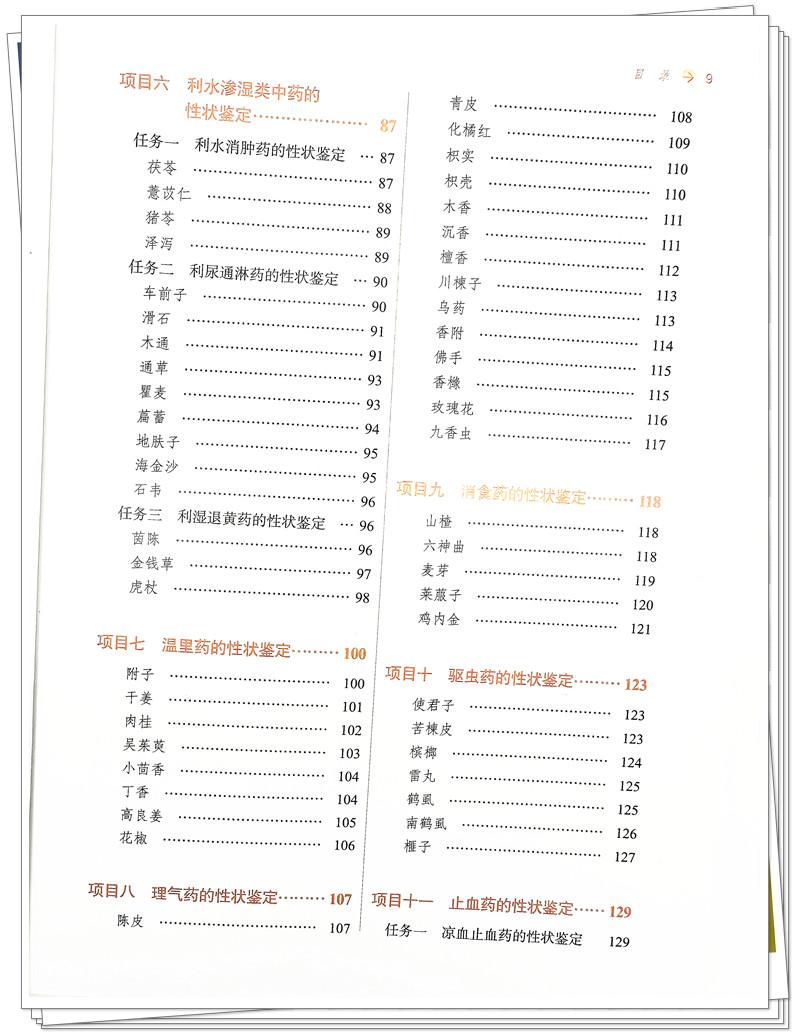 目 录 → 9
项目六 利水渗湿类中药的
性状鉴定………………… 87
任务一 利水消肿药的性状鉴定 … 87
茯苓 ……………………………… 87
薏苡仁 …………………………… 88
猪苓 ……………………………… 89
泽泻 ……………………………… 89
任务二 利尿通淋药的性状鉴定 … 90
车前子 …………………………… 90
滑石 ……………………………… 91
木通 ……………………………… 91
通草 ……………………………… 93
瞿麦 ……………………………… 93
萹蓄 ……………………………… 94
地肤子 …………………………… 95
海金沙 …………………………… 95
石韦 ……………………………… 96
任务三 利湿退黄药的性状鉴定 … 96
茵陈 ……………………………… 96
金钱草 …………………………… 97
虎杖 ……………………………… 98
项目七 温里药的性状鉴定……… 100
附子 …………………………… 100
干姜 …………………………… 101
肉桂 …………………………… 102
吴茱萸 ………………………… 103
小茴香 ………………………… 104
丁香 …………………………… 104
高良姜 ………………………… 105
花椒 …………………………… 106
项目八 理气药的性状鉴定……… 107
陈皮 …………………………… 107
青皮 …………………………… 108
化橘红 ………………………… 109
枳实 …………………………… 110
枳壳 …………………………… 110
木香 …………………………… 111
沉香 …………………………… 111
檀香 …………………………… 112
川楝子 ………………………… 113
乌药 …………………………… 113
香附 …………………………… 114
佛手 …………………………… 115
香橼 …………………………… 115
玫瑰花 ………………………… 116
九香虫 ………………………… 117
项目九 消食药的性状鉴定……… 118
山楂 …………………………… 118
六神曲 ………………………… 118
麦芽 …………………………… 119
莱菔子 ………………………… 120
鸡内金 ………………………… 121
项目十 驱虫药的性状鉴定……… 123
使君子 ………………………… 123
苦楝皮 ………………………… 123
槟榔 …………………………… 124
雷丸 …………………………… 125
鹤虱 …………………………… 125
南鹤虱 ………………………… 126
榧子 …………………………… 127
项目十一 止血药的性状鉴定…… 129
任务一 凉血止血药的性状鉴定 129